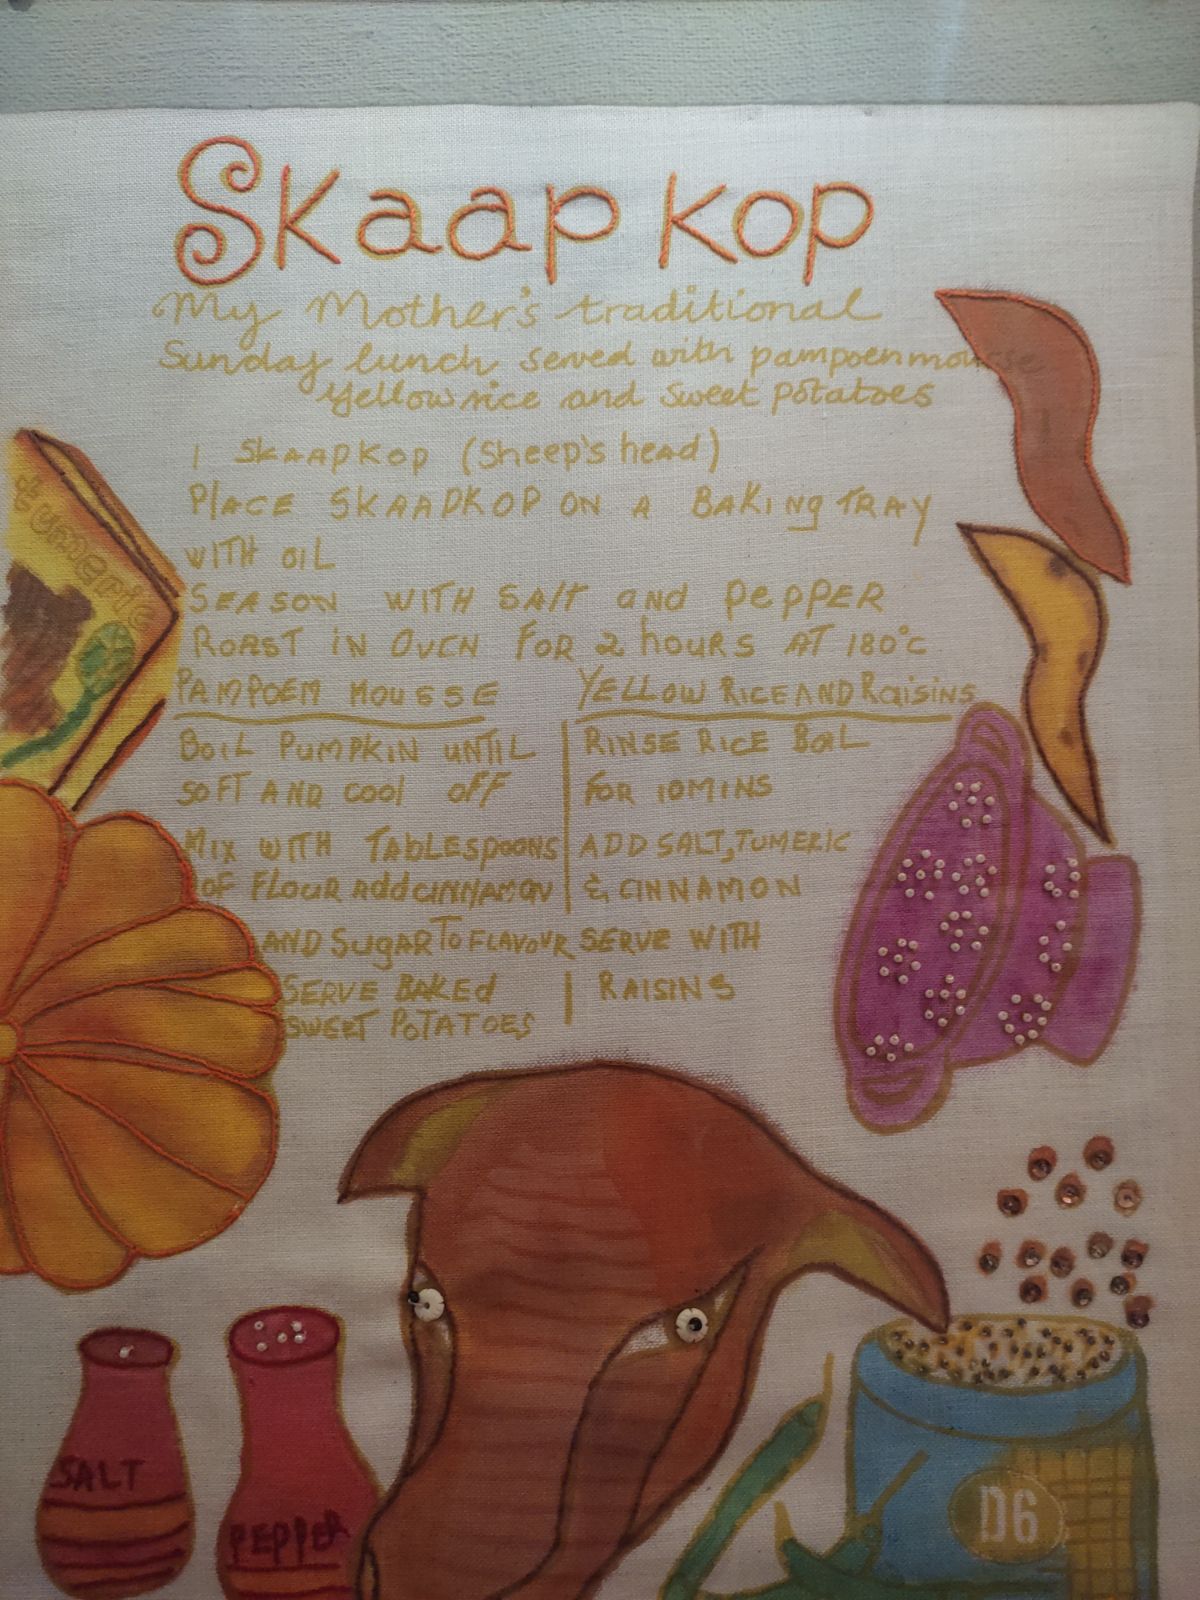 Skaap kop
My Mother's traditional
Sunday lunch served with pampoenmousse
Yellow rice and sweet potatoes
1 SKAAPKOP (Sheep's head)
PLACE SKAAPKOP ON A BAKING TRAY
WITH OIL
SEASON WITH SALT and PEPPER
ROAST IN OVEN FOR 2 hours AT 180°C
PAMPOEM MOUSSE
BOIL PUMPKIN UNTIL
SOFT AND COOL OFF
MIX WITH TABLESPOONS
OF FLOUR ADD CINNAMON
AND SUGAR TO FLAVOUR
SERVE BAKED
SWEET POTATOES
YELLOW RICE AND RAISINS
RINSE RICE BOIL
FOR 10MINS
ADD SALT, TUMERIC
& CINNAMON
SERVE WITH
RAISINS
tumeric
SALT
PEPPER
D6